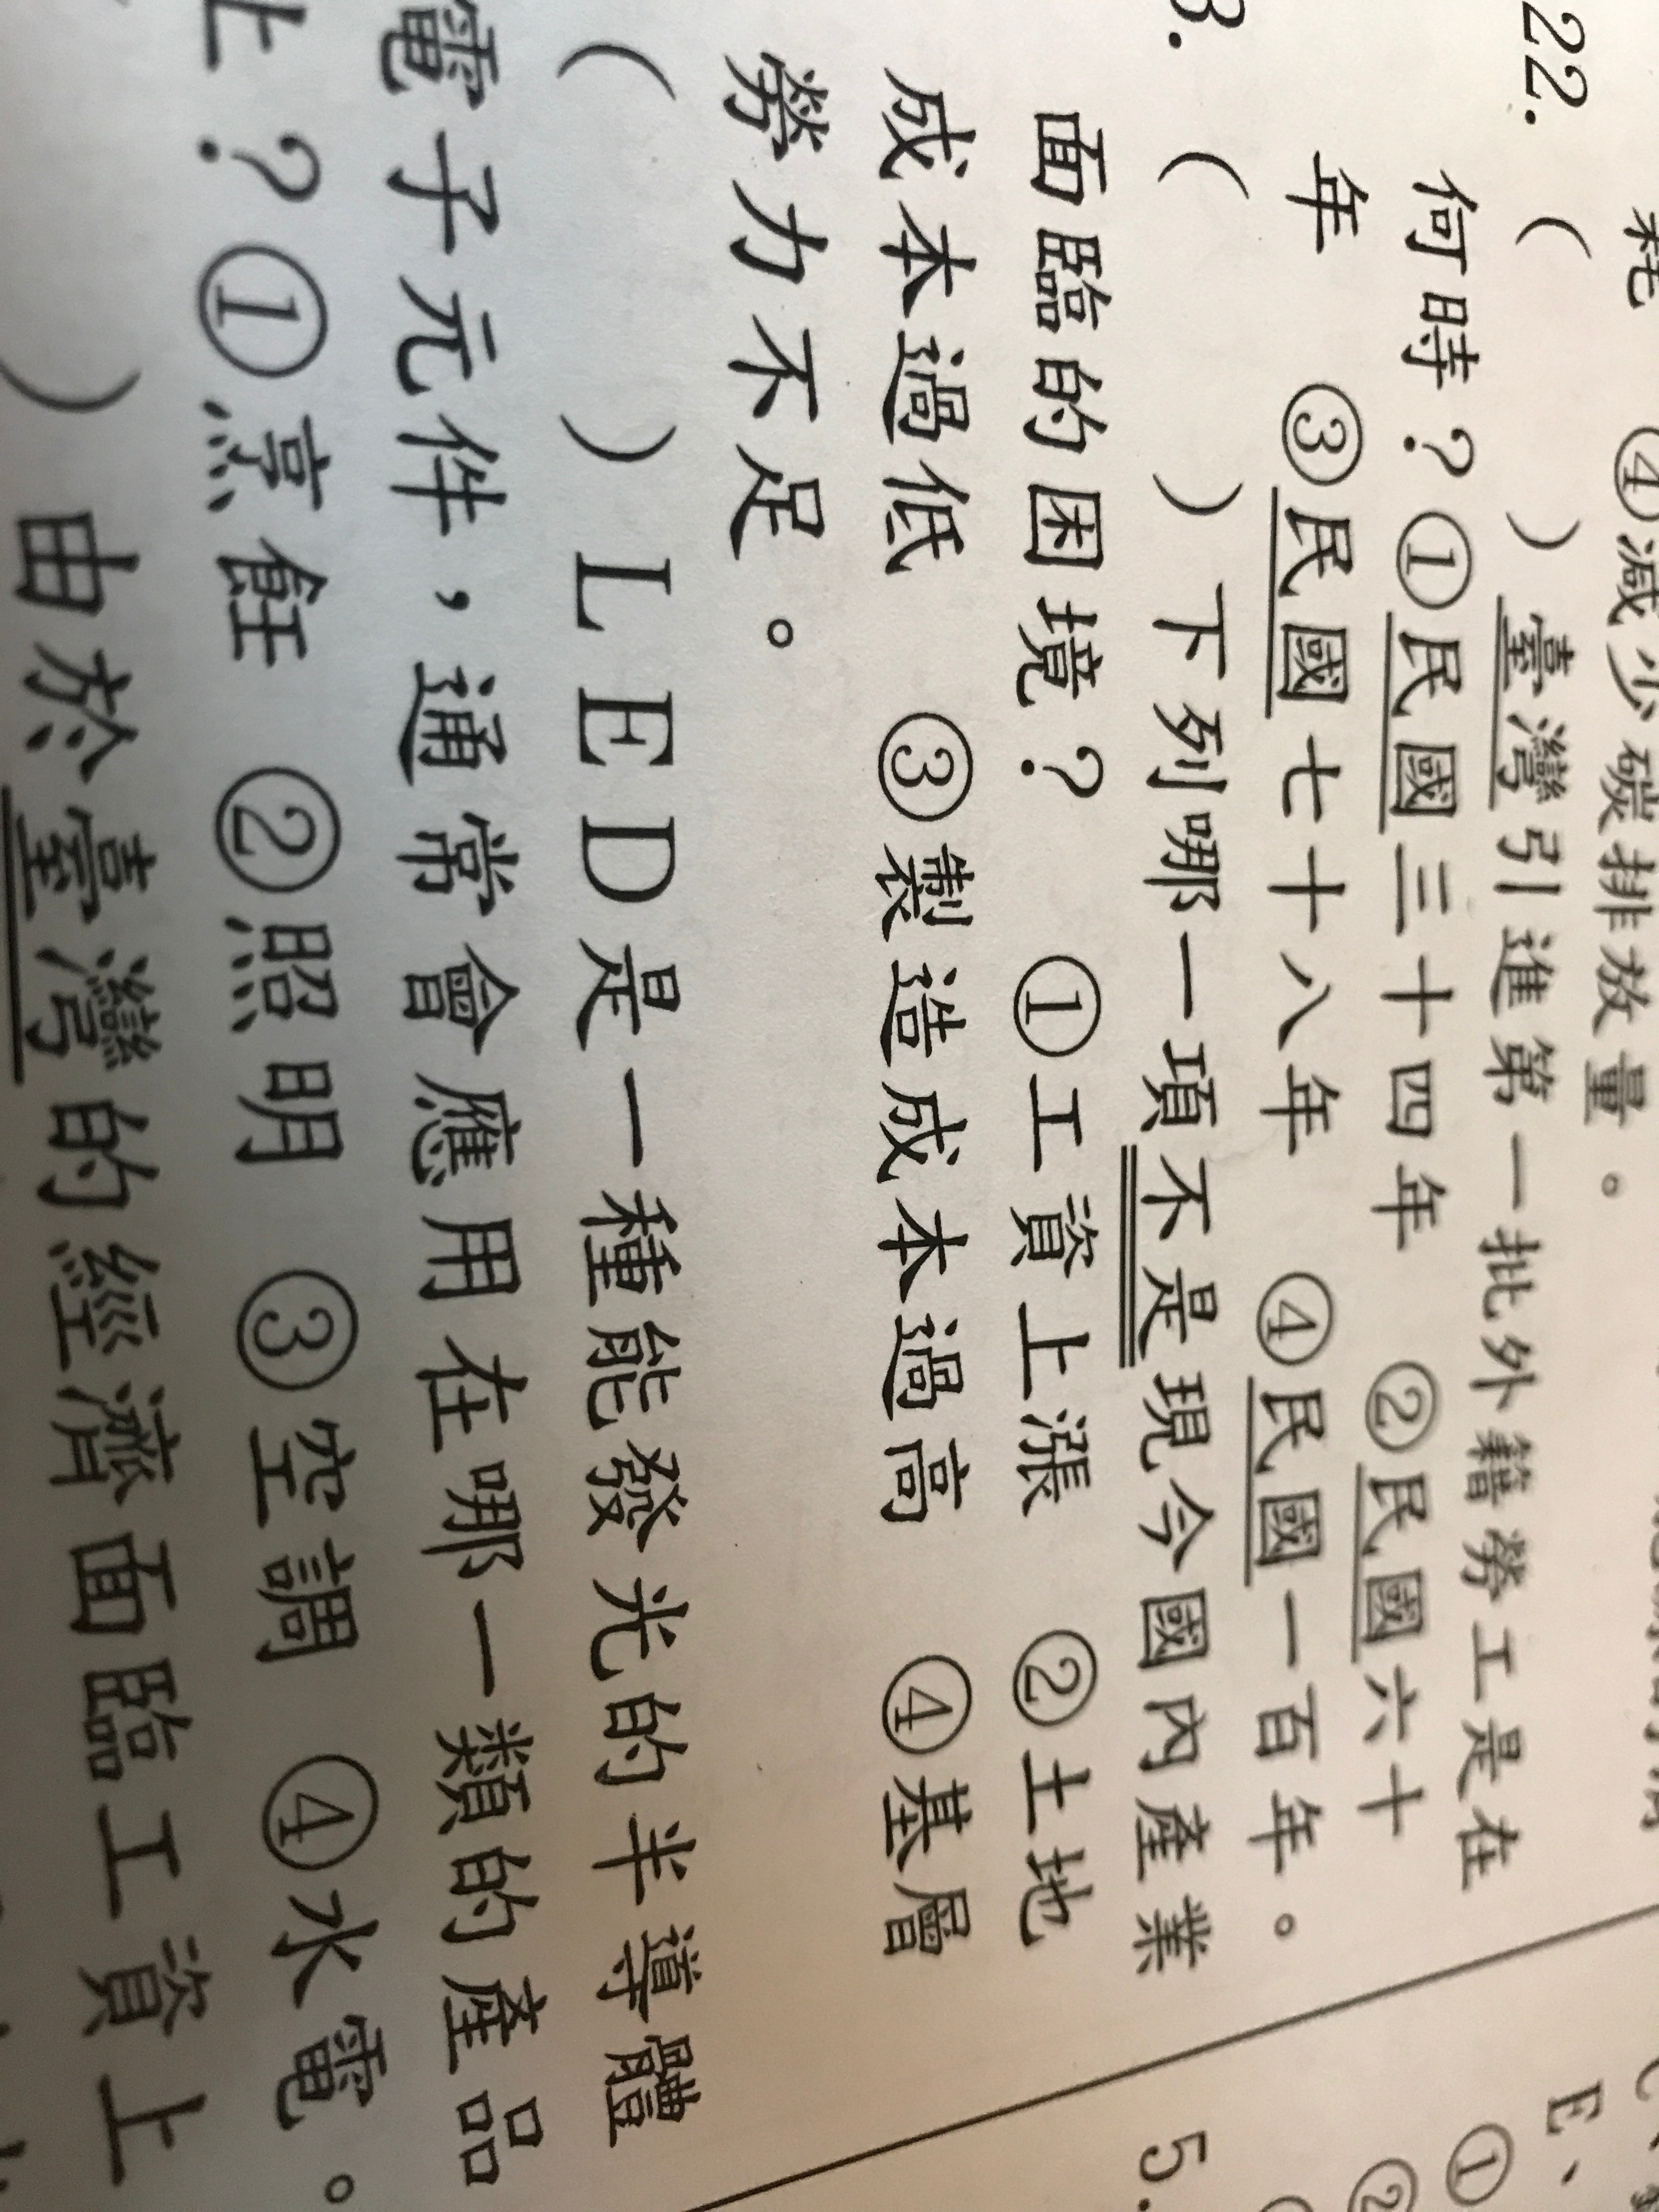 耗 ④減少碳排放量。
22. ( )臺灣引進第一批外籍勞工是在
何時?①民國三十四年 ②民國六十
年 ③民國七十八年 ④民國一百年。
3. ( )下列哪一項不是現今國內產業
面臨的困境? ①工資上漲 ②土地
成本過低 ③製造成本過高 ④基層
勞力不足。
( )LED是一種能發光的半導體
電子元件,通常會應用在哪一類的產品
上?①烹飪 ②照明 ③空調 ④水電。
)由於臺灣的經濟面臨工資上
E、
①
②
5.